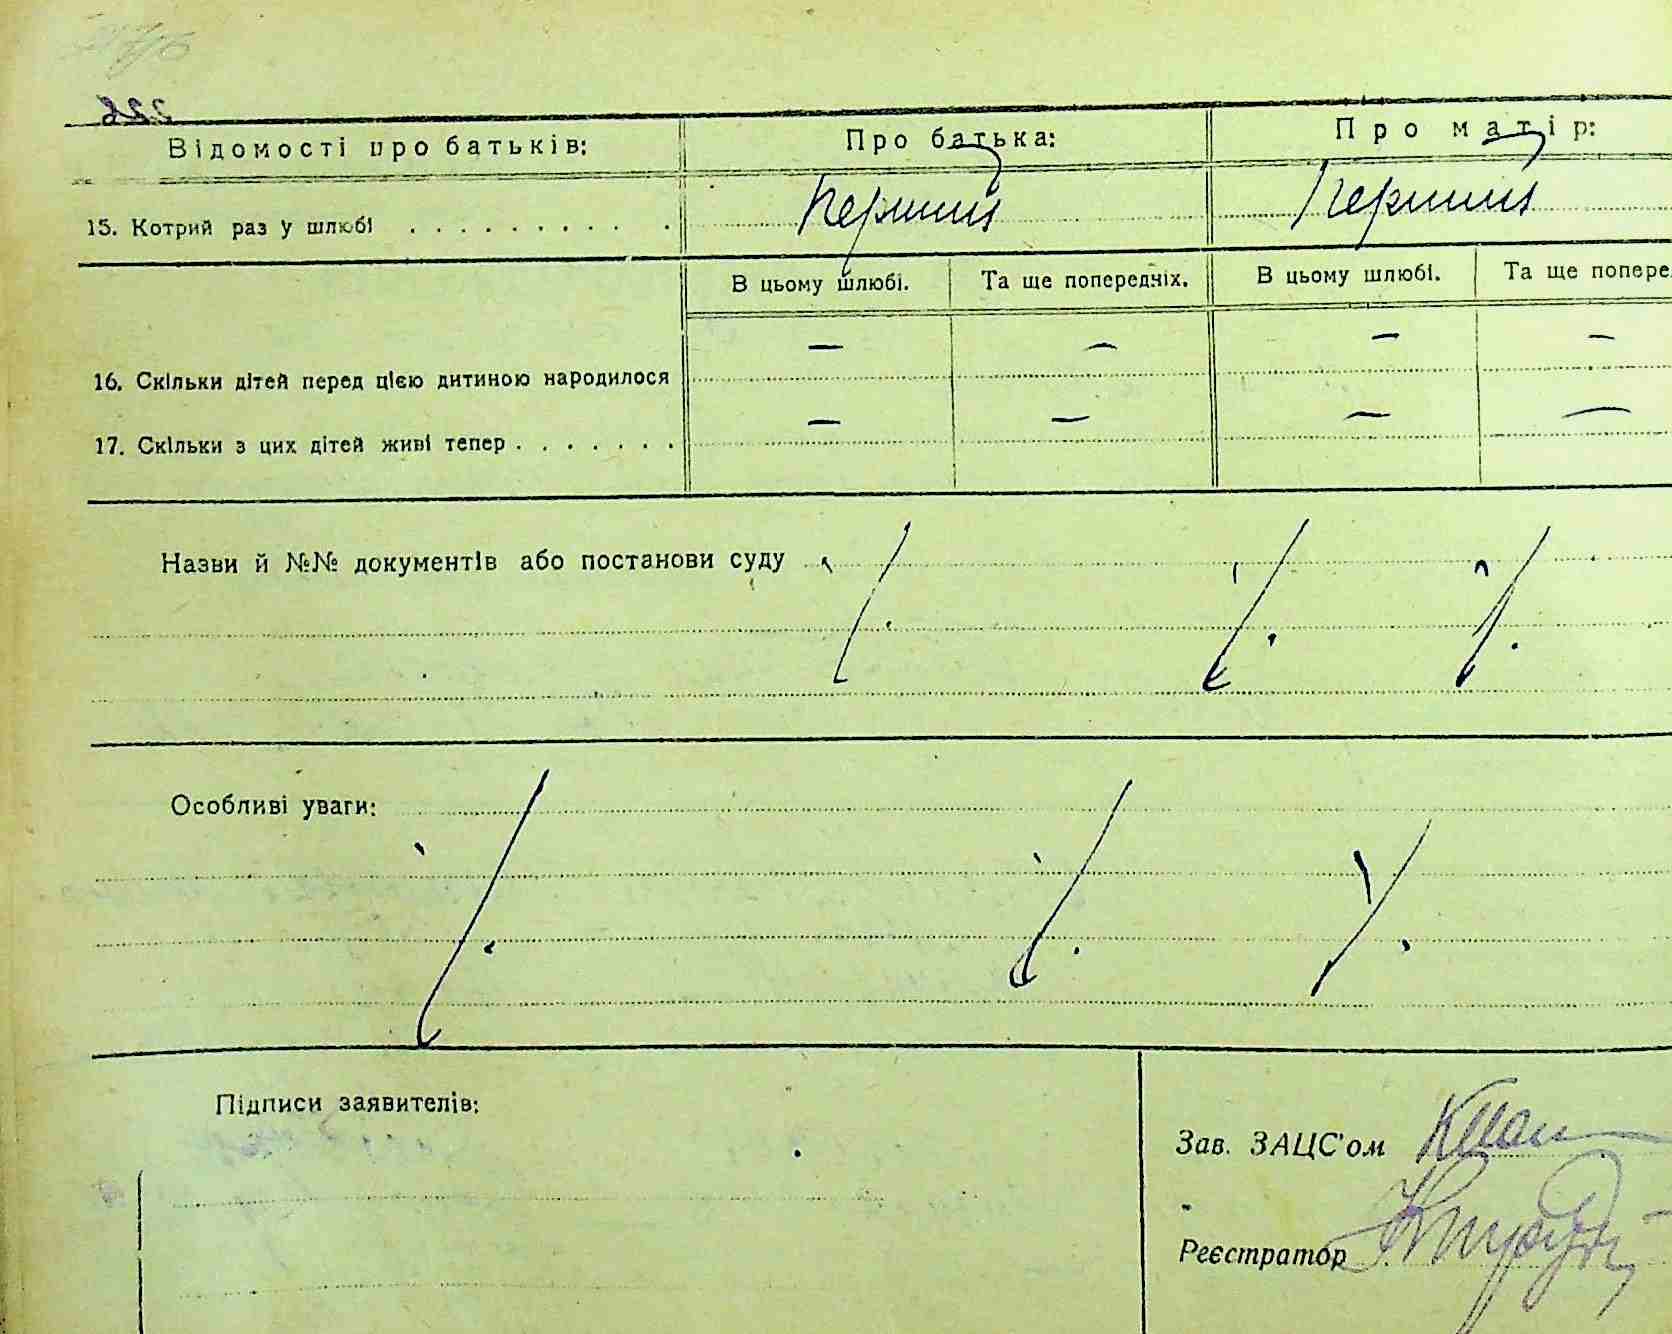 Відомості про батьків: Про батька: Про матір:
15. Котрий раз у шлюбі . . . . . . . . . . . Перший Перший
В цьому шлюбі. Та ще попередніх. В цьому шлюбі. Та ще попере
16. Скільки дітей перед цією дитиною народилося — — — —
17. Скільки з цих дітей живі тепер . . . . . . . — — — —
Назви й №№ документів або постанови суду
Особливі уваги:
Підписи заявителів:
Зав. ЗАЦС'ом
Реєстратор